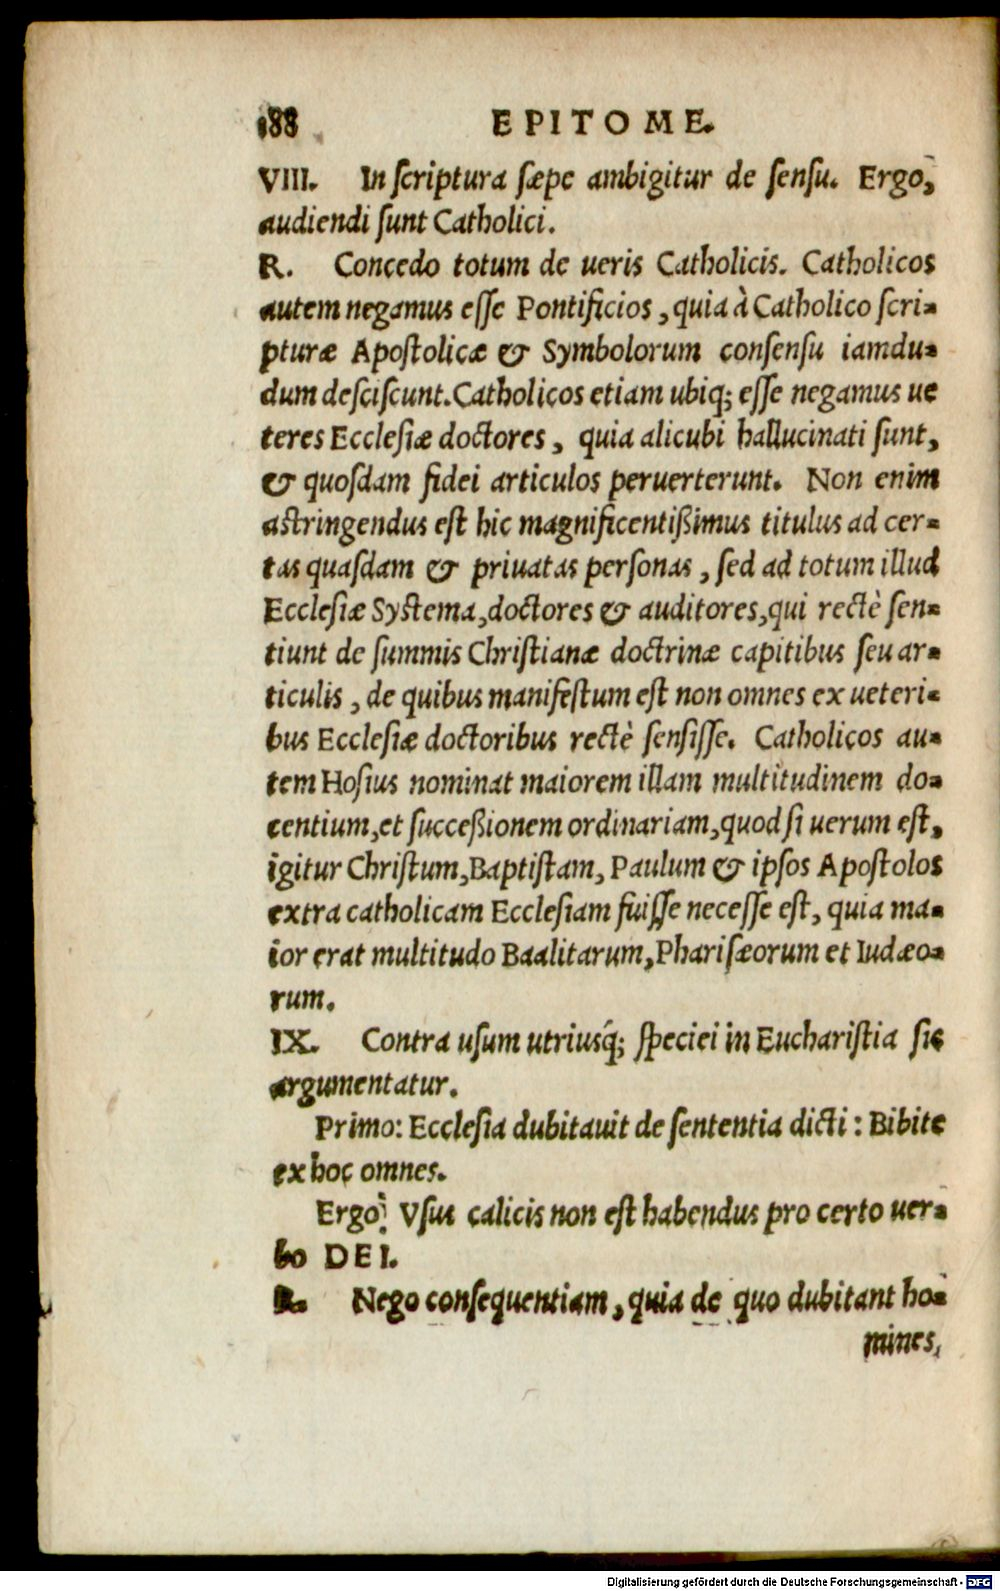 188 EPITOME.
VIII. In ſcriptura ſæpe ambigitur de ſenſu. Ergo,
audiendi ſunt Catholici.
R. Concedo totum de ueris Catholicis. Catholicos
autem negamus eſſe Pontificios, quia à Catholico ſcri-
pturæ Apoſtolicæ & Symbolorum conſenſu iamdu-
dum deſciſcunt. Catholicos etiam ubiq; eſſe negamus ue
teres Eccleſiæ doctores, quia alicubi hallucinati ſunt,
& quoſdam fidei articulos peruerterunt. Non enim
astringendus eſt hic magnificentißimus titulus ad cer-
tas quaſdam & priuatas perſonas, ſed ad totum illud
Eccleſiæ Syſtema, doctores & auditores, qui rectè ſen-
tiunt de ſummis Chriſtianæ doctrinæ capitibus ſeu ar-
ticulis, de quibus manifeſtum eſt non omnes ex ueteri-
bus Eccleſiæ doctoribus rectè ſenſiſſe. Catholicos au-
tem Hoſius nominat maiorem illam multitudinem do-
centium, et ſucceßionem ordinariam, quod ſi uerum eſt,
igitur Chriſtum, Baptiſtam, Paulum & ipſos Apoſtolos
extra catholicam Eccleſiam fuiſſe neceſſe eſt, quia ma-
ior erat multitudo Baalitarum, Phariſæorum et Iudæo-
rum.
IX. Contra uſum utriuſq́; ſpeciei in Euchariſtia ſic
argumentatur.
Primo: Eccleſia dubitauit de ſententia dicti: Bibite
ex hoc omnes.
Ergo: Vſus calicis non eſt habendus pro certo uer-
bo DEI.
R. Nego conſequentiam, quia de quo dubitant ho-
mines,
Digitalisierung gefördert durch die Deutsche Forschungsgemeinschaft - DFG